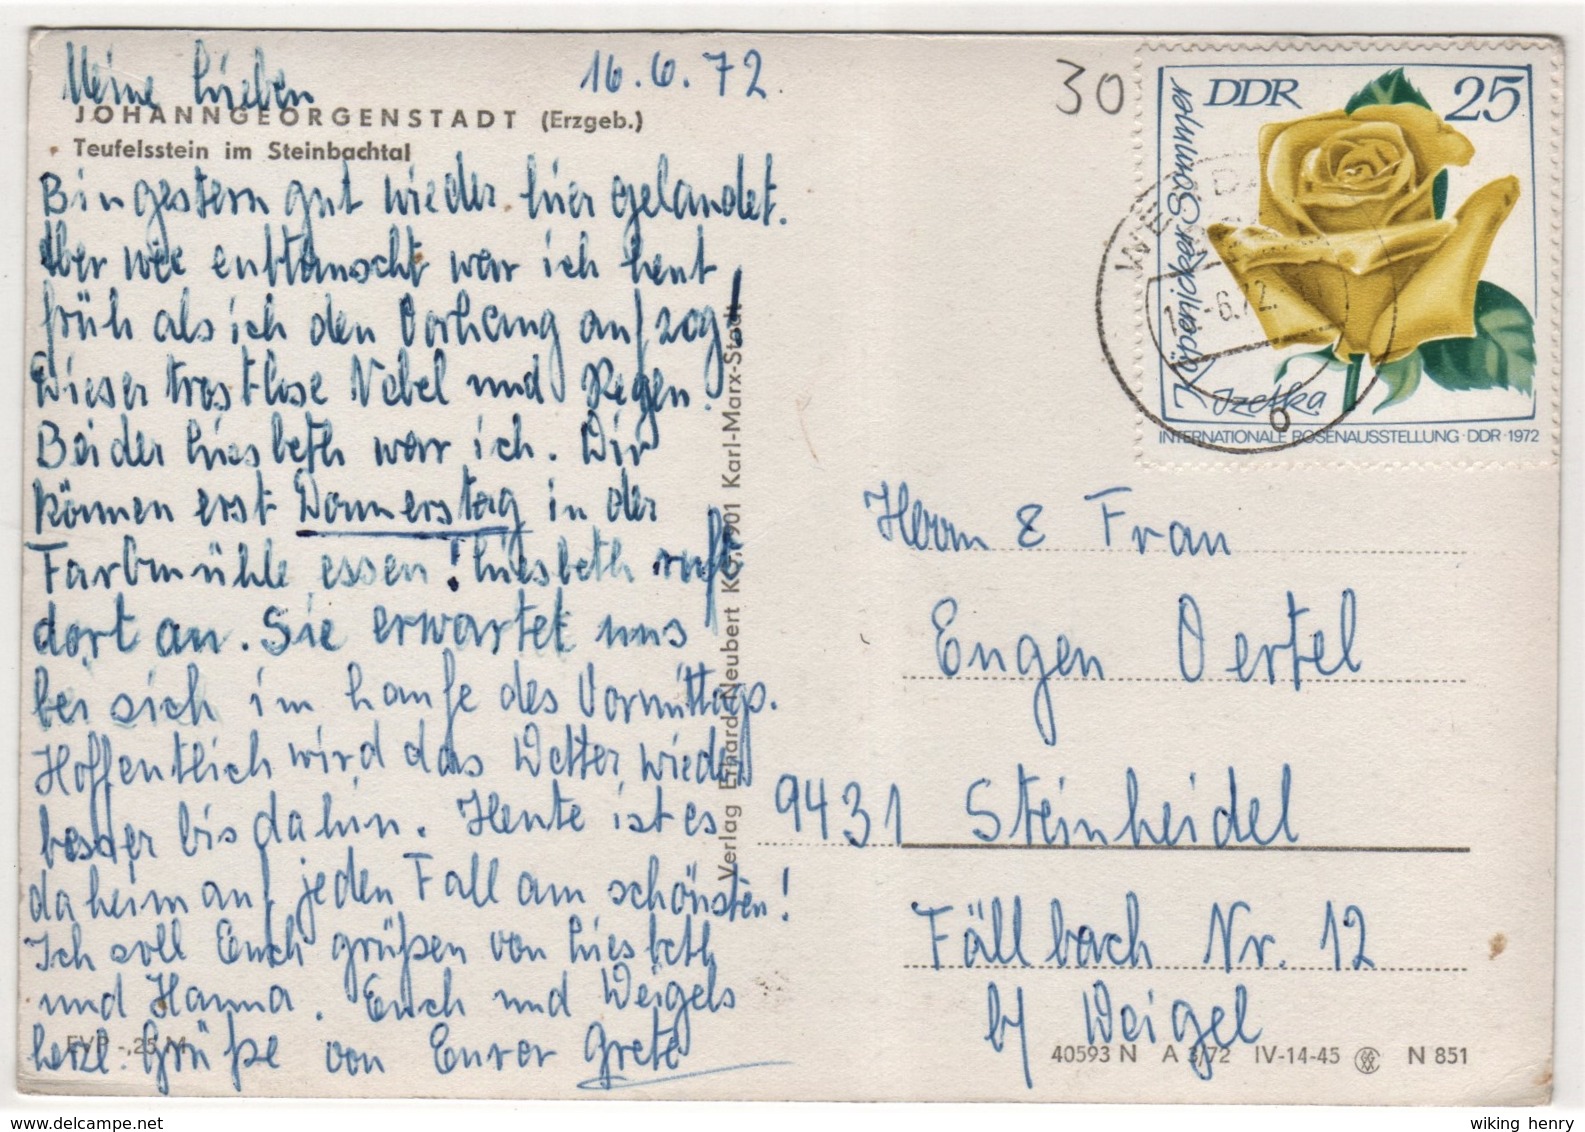 Meine Lieben 16.6.72
JOHANNGEORGENSTADT (Erzgeb.)
Teufelsstein im Steinbachtal
Bin gestern gut wieder hier gelandet.
Aber wie enttäuscht war ich heut
früh als ich den Vorhang aufzog!
Dieser trostlose Nebel und Regen.
Bei der Liesbeth war ich. Wir
können erst Donnerstag in der
Farbmühle essen! Liesbeth ruft
dort an. Sie erwartet uns
bei sich im Laufe des Vormittags.
Hoffentlich wird das Wetter wieder
besser bis dahin. Heute ist es
daheim auf jeden Fall am schönsten!
Ich soll Euch grüßen von Liesbeth
und Hanna. Euch und Weigels
herzl. Grüße von Eurer Grete
EVP -,25 M
Verlag Erhard Neubert KG, 901 Karl-Marx-Stadt
30
DDR 25
Zepernicker Sommer
Izetka
INTERNATIONALE ROSENAUSSTELLUNG·DDR·1972
b
Herrn & Frau
Eugen Oertel
9431 Steinheidel
Fällbach Nr. 12
b/ Weigel
40593 N A 3/72 IV-14-45 N 851
wiking henry